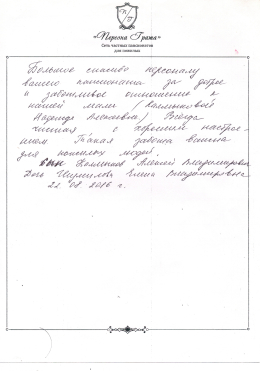 «Персона Грата»
Сеть частных пансионатов
для пожилых
Большое спасибо персоналу
вашего пансионата за доброе
и заботливое отношение к
нашей маме (Колмыковой
Надежде) Всегда
чистая с хорошим настрое-
нием Такая забота важна
для пожилых людей.
сын Колмыков Алексей Владимирович
Дочь Елена Владимировна
21 08 2016 г.